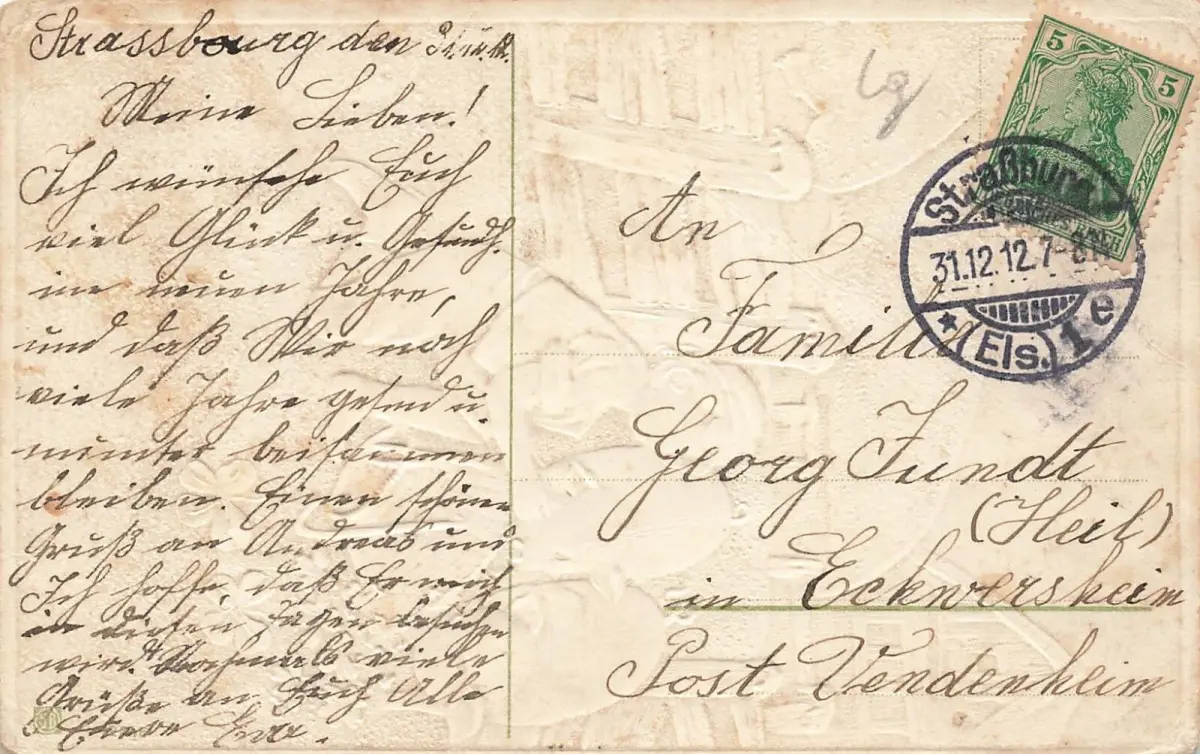 Strassbourg den 31.12.12.
Meine Lieben!
Ich wünsche Euch
viel Glück u. Gesundh.
im neuen Jahre,
und daß Wir noch
viele Jahre gesund u.
munter beisammen
bleiben. Einen schönen
Gruß an Andreas und
Ich hoffe, daß Er mich
in diesen Tagen besuchen
wird. Nochmals viele
Grüße an Euch Alle
Euere Eva.
An
Familie
Georg Fundt
(Heil)
in Eckwersheim
Post Vendenheim
5 5
Straßburg
31.12.12.7-8N
* (Els.) 1 e